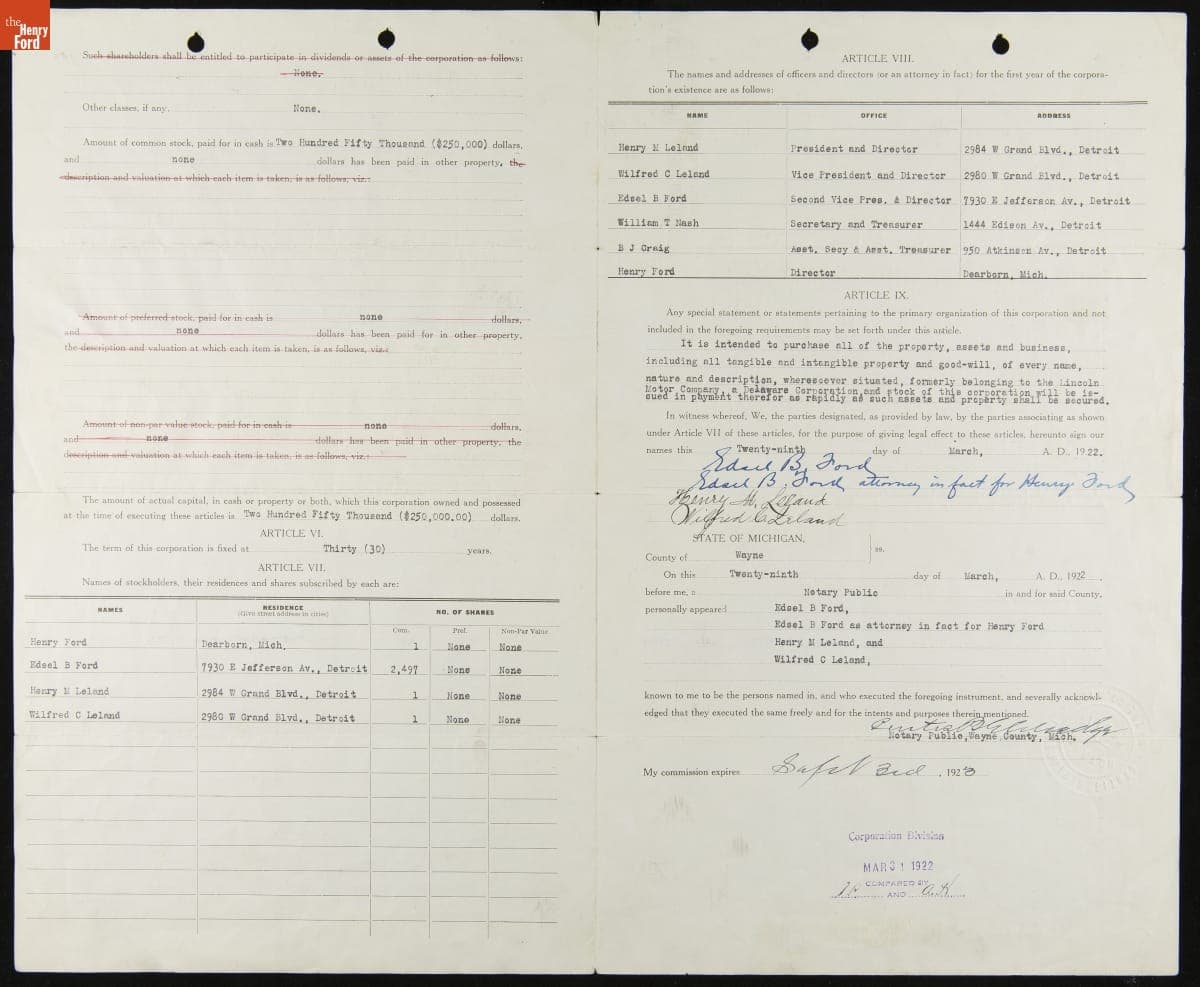 the
Henry
Ford
Such shareholders shall be entitled to participate in dividends or assets of the corporation as follows:
None.
Other classes, if any, None.
Amount of common stock, paid for in cash is Two Hundred Fifty Thousand ($250,000) dollars,
and none dollars has been paid in other property, the
description and valuation at which each item is taken, is as follows, viz.:
Amount of preferred stock, paid for in cash is none dollars,
and none dollars has been paid for in other property,
the description and valuation at which each item is taken, is as follows, viz.:
Amount of non-par value stock, paid for in cash is none dollars,
and none dollars has been paid in other property, the
description and valuation at which each item is taken, is as follows, viz.:
The amount of actual capital, in cash or property or both, which this corporation owned and possessed
at the time of executing these articles is Two Hundred Fifty Thousand ($250,000.00) dollars.
ARTICLE VI.
The term of this corporation is fixed at Thirty (30) years.
ARTICLE VII.
Names of stockholders, their residences and shares subscribed by each are:
NAMES RESIDENCE NO. OF SHARES
(Give street address in cities)
Com. Pref. Non-Par Value
Henry Ford Dearborn, Mich. 1 None None
Edsel B Ford 7930 E Jefferson Av., Detroit 2,497 None None
Henry M Leland 2984 W Grand Blvd., Detroit 1 None None
Wilfred C Leland 2980 W Grand Blvd., Detroit 1 None None
ARTICLE VIII.
The names and addresses of officers and directors (or an attorney in fact) for the first year of the corpora-
tion's existence are as follows:
NAME OFFICE ADDRESS
Henry M Leland President and Director 2984 W Grand Blvd., Detroit
Wilfred C Leland Vice President and Director 2980 W Grand Blvd., Detroit
Edsel B Ford Second Vice Pres. & Director 7930 E Jefferson Av., Detroit
William T Nash Secretary and Treasurer 1444 Edison Av., Detroit
B J Craig Asst. Secy & Asst. Treasurer 950 Atkinson Av., Detroit
Henry Ford Director Dearborn, Mich.
ARTICLE IX.
Any special statement or statements pertaining to the primary organization of this corporation and not
included in the foregoing requirements may be set forth under this article.
It is intended to purchase all of the property, assets and business,
including all tangible and intangible property and good-will, of every name,
nature and description, wheresoever situated, formerly belonging to the Lincoln
Motor Company, a Delaware Corporation and stock of this corporation will be is-
sued in payment therefor as rapidly as such assets and property shall be secured.
In witness whereof, We, the parties designated, as provided by law, by the parties associating as shown
under Article VII of these articles, for the purpose of giving legal effect to these articles, hereunto sign our
names this Twenty-ninth day of March, A. D., 1922.
Edsel B. Ford
Edsel B. Ford attorney in fact for Henry Ford
Henry M. Leland
Wilfred C Leland
STATE OF MICHIGAN,
ss.
County of Wayne
On this Twenty-ninth day of March, A. D., 1922.
before me, a Notary Public in and for said County,
personally appeared Edsel B Ford,
Edsel B Ford as attorney in fact for Henry Ford
Henry M Leland, and
Wilfred C Leland,
known to me to be the persons named in, and who executed the foregoing instrument, and severally acknowl-
edged that they executed the same freely and for the intents and purposes therein mentioned.
Notary Public, Wayne County, Mich.
My commission expires 3rd, 1923
Corporation Division
MAR 31 1922
COMPARED BY
AND A.K